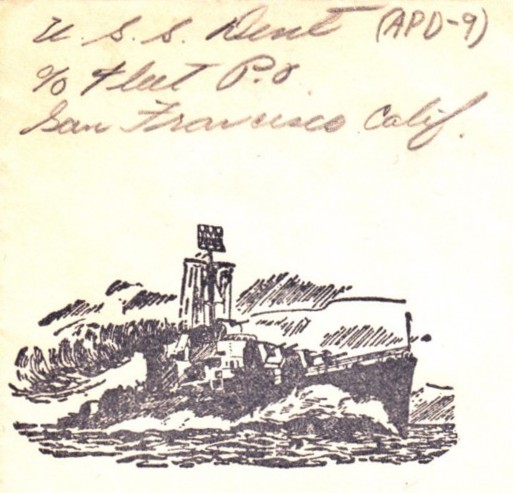 U.S.S. Dent (APD-9)
c/o Fleet P.O
San Francisco Calif.